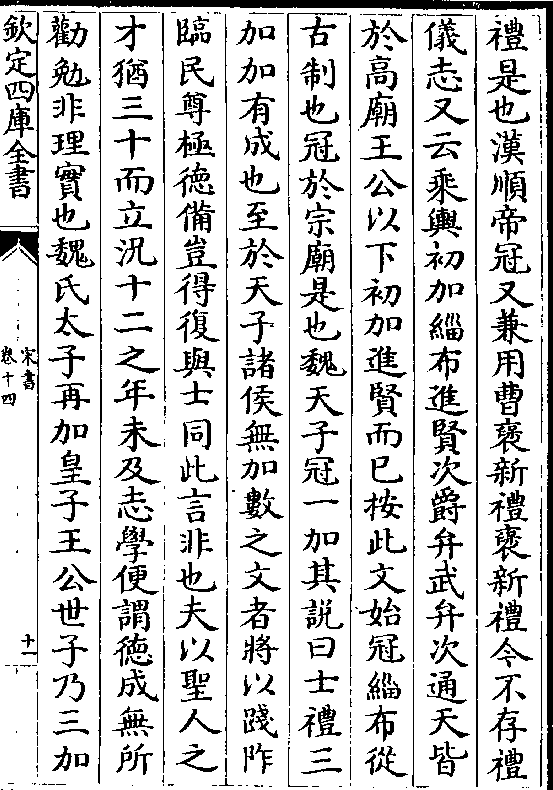 禮是也漢順帝冠又兼用曹褒新禮褒新禮今不存禮
儀志又云乘輿初加緇布進賢次爵弁武弁次通天皆
於高廟王公以下初加進賢而已按此文始冠緇布從
古制也冠於宗廟是也魏天子冠一加其說曰士禮三
加加有成也至於天子諸侯無加數之文者將以踐阼
臨民尊極德備豈得復與士同此言非也夫以聖人之
才猶三十而立況十二之年未及志學便謂德成無所
勸勉非理實也魏氏太子再加皇子王公世子乃三加
欽定四庫全書
宋書
卷十四
十一